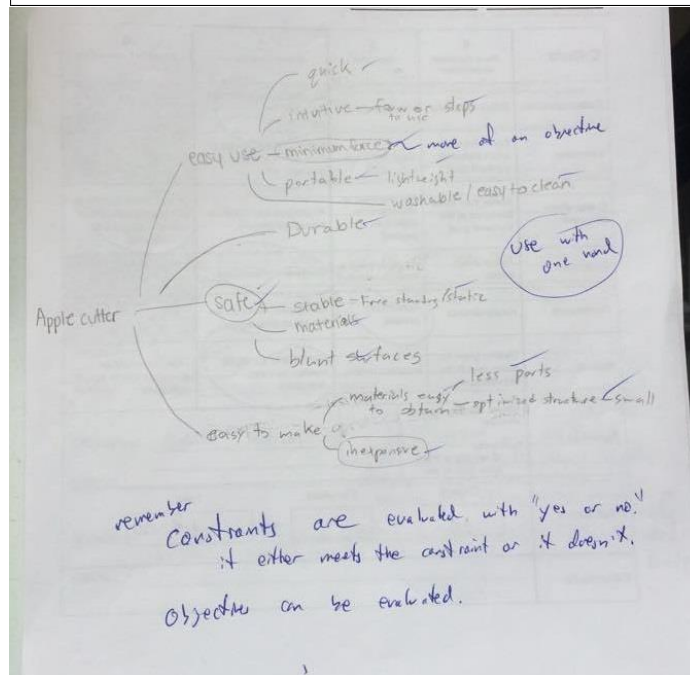 quick
intuitive - few or steps
to use
easy use - minimum force more of an objective
portable - lightweight
washable / easy to clean
Durable
Use with
one hand
Apple cutter
safe
stable - free standing/static
materials
blunt surfaces
less parts
materials easy
to obtain - optimized structure - small
easy to make
inexpensive
remember
Constraints are evaluated with "yes or no."
it either meets the constraint or it doesn't.
Objectives can be evaluated.